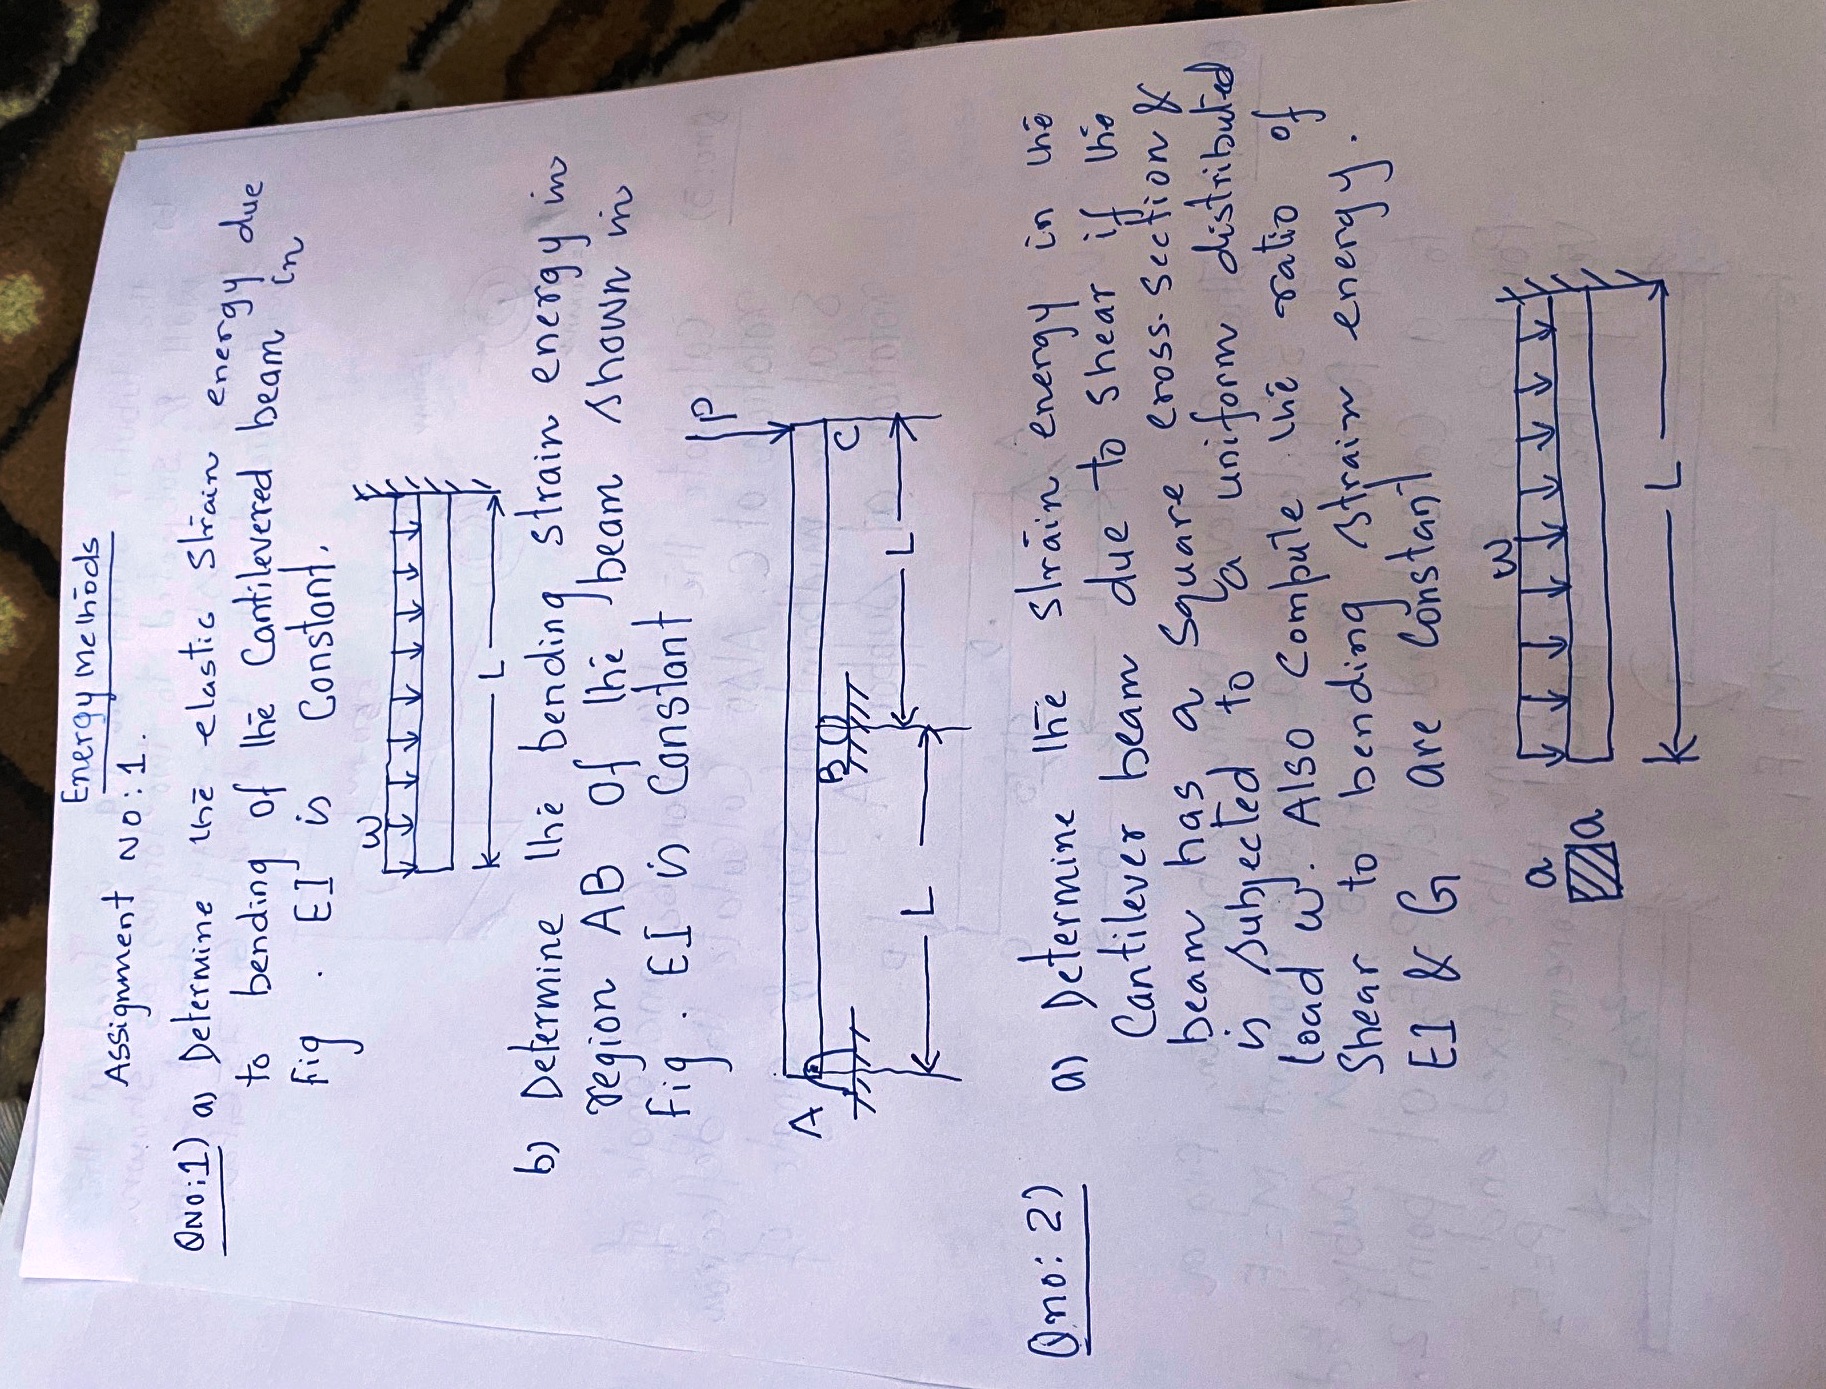 Energy methods
Assignment No: 1.
QNo: 1) a) Determine the elastic strain energy due
to bending of the Cantilevered beam in
fig . EI is Constant.
w
L
b) Determine the bending strain energy in
region AB of the beam shown in
fig . EI is Constant
P
A B C
L L
Qno: 2) a) Determine the strain energy in the
Cantilever beam due to shear if the
beam has a square cross-section &
is subjected to a uniform distributed
load w. Also compute the ratio of
Shear to bending strain energy.
EI & G are Constant
w
a
a
L